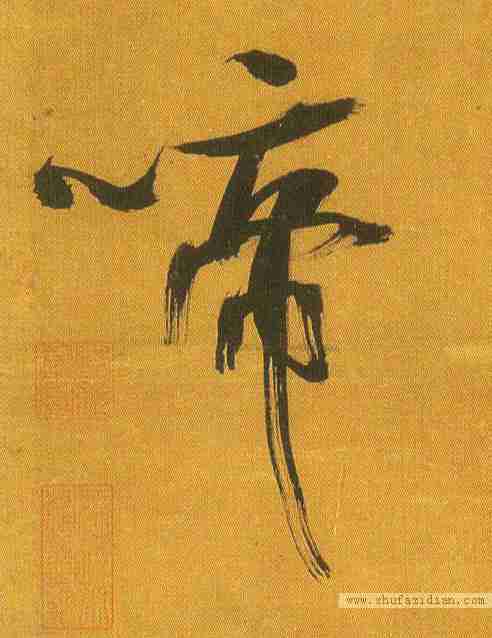 啼
www.shufazidian.com